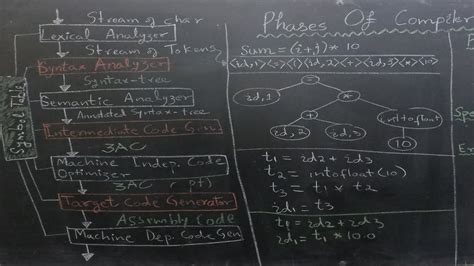 Phases Of Compiler
Stream of char
Lexical Analyzer
Stream of Tokens
Syntax Analyzer
Syntax-tree
Semantic Analyzer
Annoted Syntax-tree
Intermediate Code Gen.
3AC
Machine Indep. Code
Optimizer
3AC (pt)
Target Code Generator
Assembly Code
Machine Dep. Code Gen
Symbol Table
Sum = (i+j) * 10
=
id,1
*
+
inttofloat
id,2
id,3
10
t1 = id2 + id3
t2 = inttofloat(10)
t3 = t1 * t2
id1 = t3
t1 = id2 + id3
id1 = t1 * 10.0